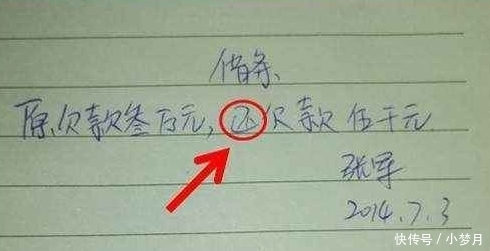 借条
原欠款叁万元,还欠款伍千元
张军
2014.7.3
快传号/小梦月